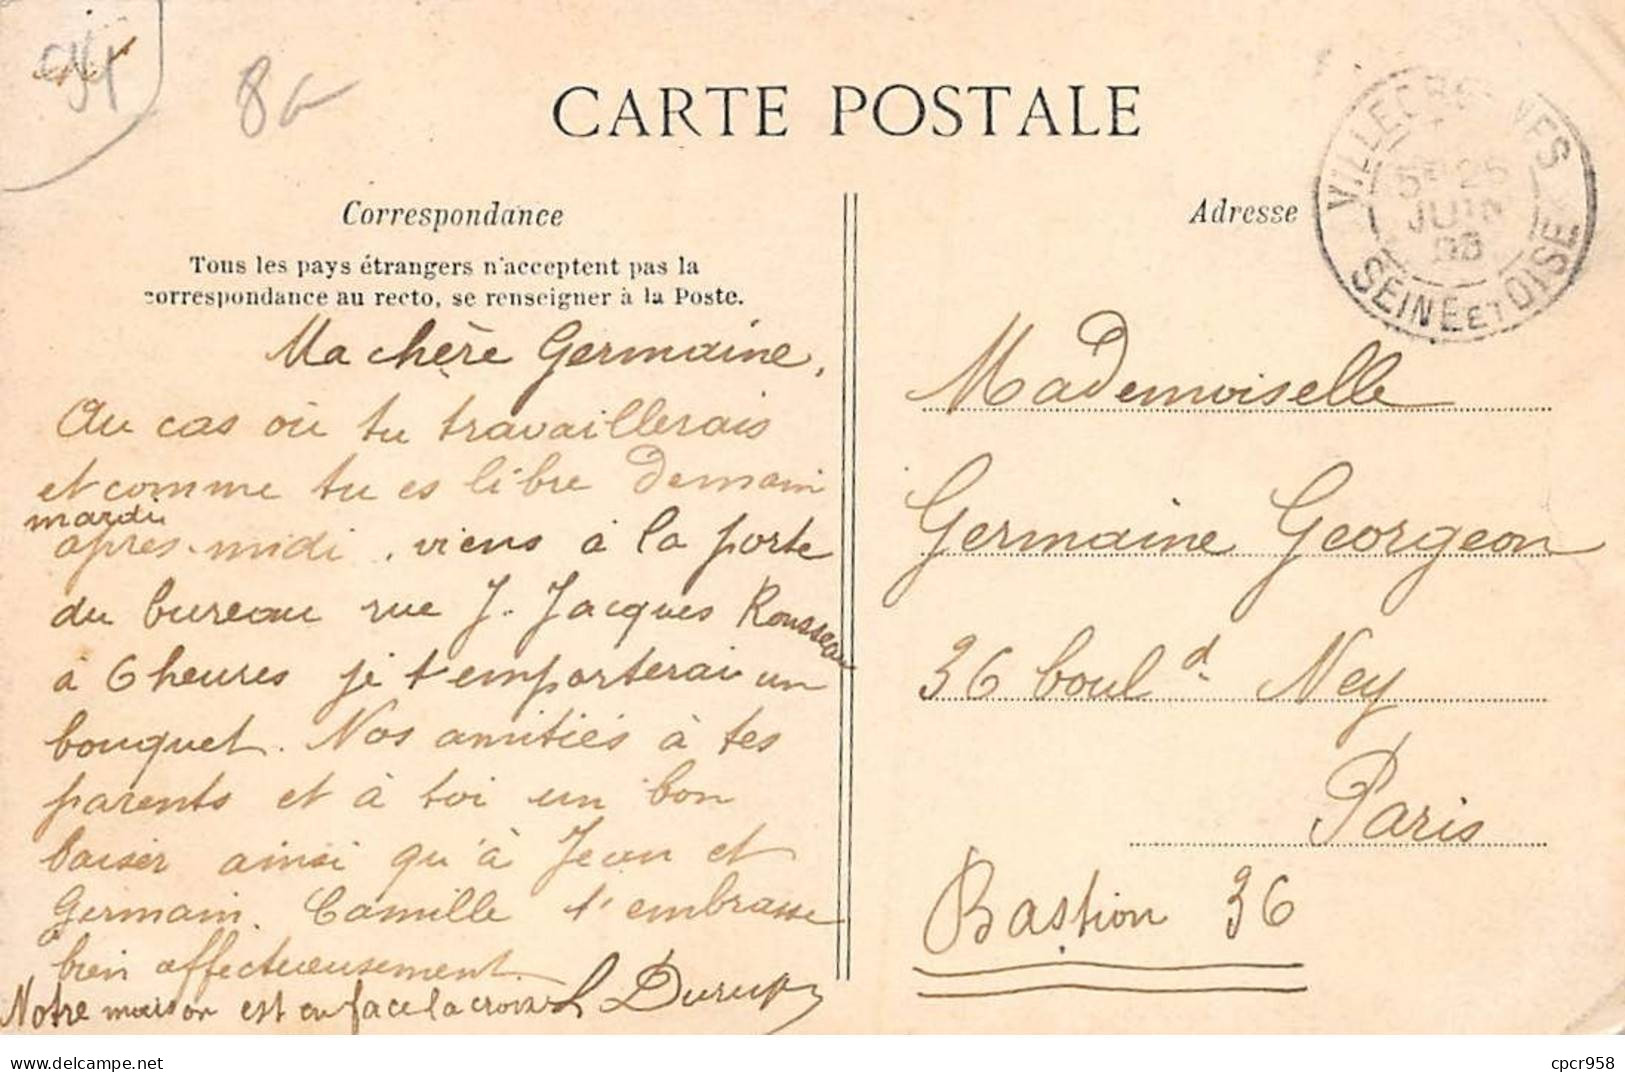 94
8G
CARTE POSTALE
Correspondance
Tous les pays étrangers n'acceptent pas la
correspondance au recto, se renseigner à la Poste.
Ma chère Germaine,
Au cas où tu travaillerais
et comme tu es libre demain
mardi
après-midi, viens à la porte
du bureau rue J. Jacques Rousseau
à 6 heures je t'emporterai un
bouquet. Nos amitiés à tes
parents et à toi un bon
baiser ainsi qu'à Jean et
Germain. Camille t'embrasse
bien affectueusement.
Notre maison est en face la croix
Adresse
VILLECRESNES
5E 25
JUIN
08
SEINE ET OISE
Mademoiselle
Germaine Georgeon
36 boul.d Ney
Paris
Bastion 36
https://www.delcampe.net
cpcr958